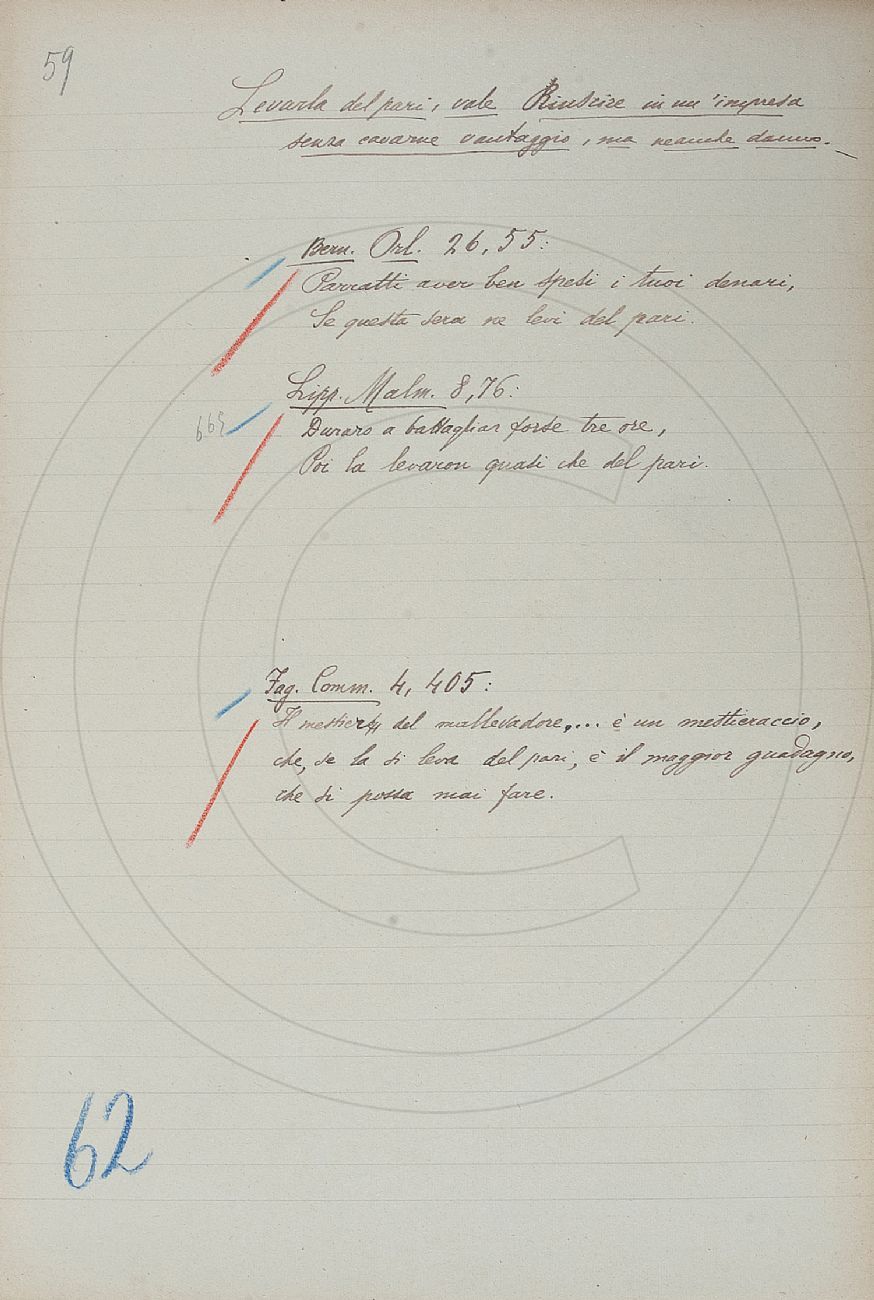 59
Levarla del pari, vale Riuscire in un'impresa
senza cavarne vantaggio, ma neanche danno. —
Bern. Orl. 26, 55:
Parratti aver ben spesi i tuoi denari,
Se questa sera ne levi del pari.
Lipp. Malm. 8, 76:
Duraro a battagliar forse tre ore,
Poi la levaron quasi che del pari.
Fag. Comm. 4, 405:
Il mestier del mallevadore,... è un mestieraccio,
che, se la si leva del pari, è il maggior guadagno,
che si possa mai fare.
62